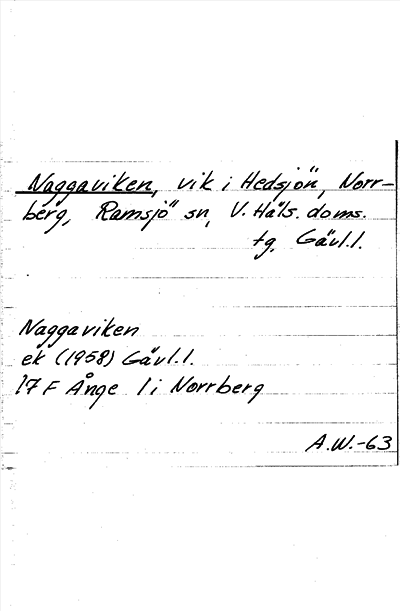 Naggaviken, vik i Hedsjön, Norr-
berg, Ramsjö sn, V. Häls. doms.
tg, Gävl.l.
Naggaviken
ek (1958) Gävl.l.
17 F Ånge 1 i Norrberg
A.W.-63